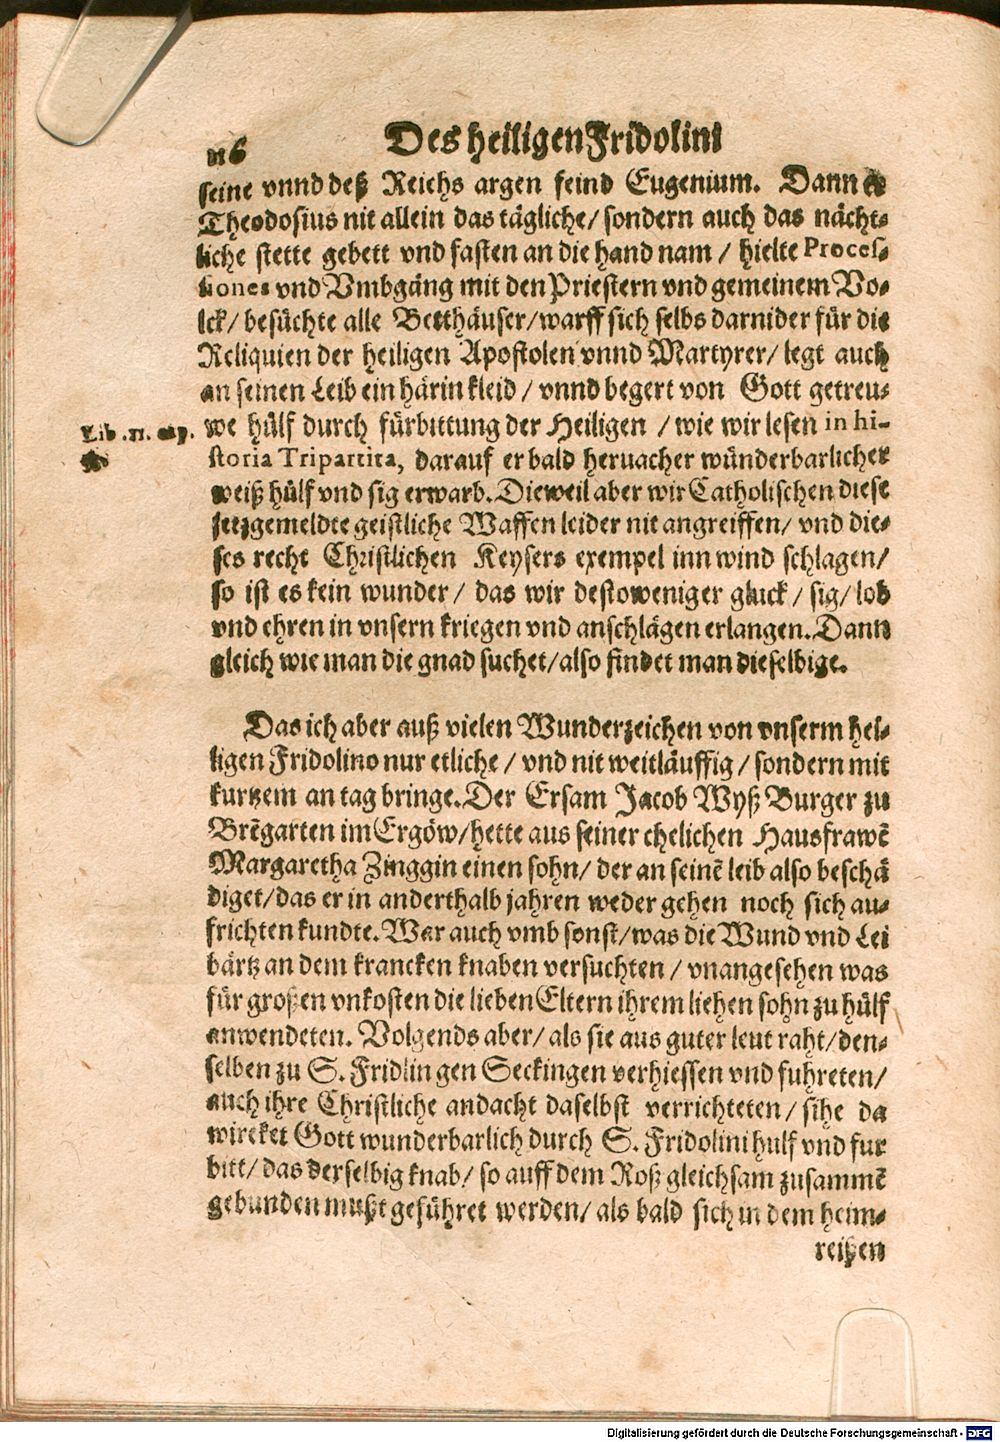 Des heiligen Fridolini
seine vnnd deß Reichs argen feind Eugenium. Dann
Theodosius nit allein das tägliche/ sondern auch das nächt-
liche stette gebett vnd fasten an die hand nam / hielte Proces-
siones vnd Vmbgäng mit den Priestern vnd gemeinem Vo-
lck/ besüchte alle Betthäuser/ warff sich selbs darnider für die
Reliquien der heiligen Apostolen vnnd Martyrer/ legt auch
an seinen Leib ein härin kleid / vnnd begert von Gott getreu-
we hülf durch fürbittung der Heiligen / wie wir lesen in hi-
Lib. 11. cap.
storia Tripartita, darauf er bald hernacher wünderbarlicher
weiß hülf vnd sig erwarb. Dieweil aber wir Catholischen diese
jetzgemeldte geistliche Waffen leider nit angreiffen/ vnd die-
ses recht Christlichen Keysers exempel inn wind schlagen/
so ist es kein wunder / das wir destoweniger gluck / sig/ lob
vnd ehren in vnsern kriegen vnd anschlägen erlangen. Dann
gleich wie man die gnad suchet/ also findet man dieselbige.
Das ich aber auß vielen Wunderzeichen von vnserm hei-
ligen Fridolino nur etliche / vnd nit weitläuffig / sondern mit
kurtzem an tag bringe. Der Ersam Jacob Wyß Burger zu
Brēgarten im Ergöw/ hette aus seiner ehelichen Hausfrawē
Margaretha Zinggin einen sohn/ der an seinē leib also beschä
diget/ das er in anderthalb jahren weder gehen noch sich au-
frichten kundte. War auch vmb sonst/ was die Wund vnd Lei
bärtz an dem krancken knaben versuchten / vnangesehen was
für großen vnkosten die lieben Eltern ihrem liehen sohn zu hülf
anwendeten. Volgends aber/ als sie aus guter leut raht/ den-
selben zu S. Fridlin gen Seckingen verhiessen vnd fuhreten/
auch ihre Christliche andacht daselbst verrichteten / sihe da
wircket Gott wunderbarlich durch S. Fridolini hulf vnd fur
bitt/ das derselbig knab/ so auff dem Roß gleichsam zusammē
gebunden mußt geführet werden/ als bald sich in dem heim-
reißen
Digitalisierung gefördert durch die Deutsche Forschungsgemeinschaft - DFG